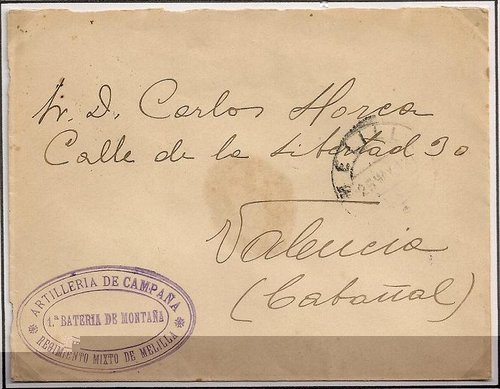 Sr. D. Carlos Horca
Calle de la Libertad 30
Valencia
(Cabañal)
MELILL
ARTILLERIA DE CAMPAÑA
1.ª BATERIA DE MONTAÑA
REGIMIENTO MIXTO DE MELILLA